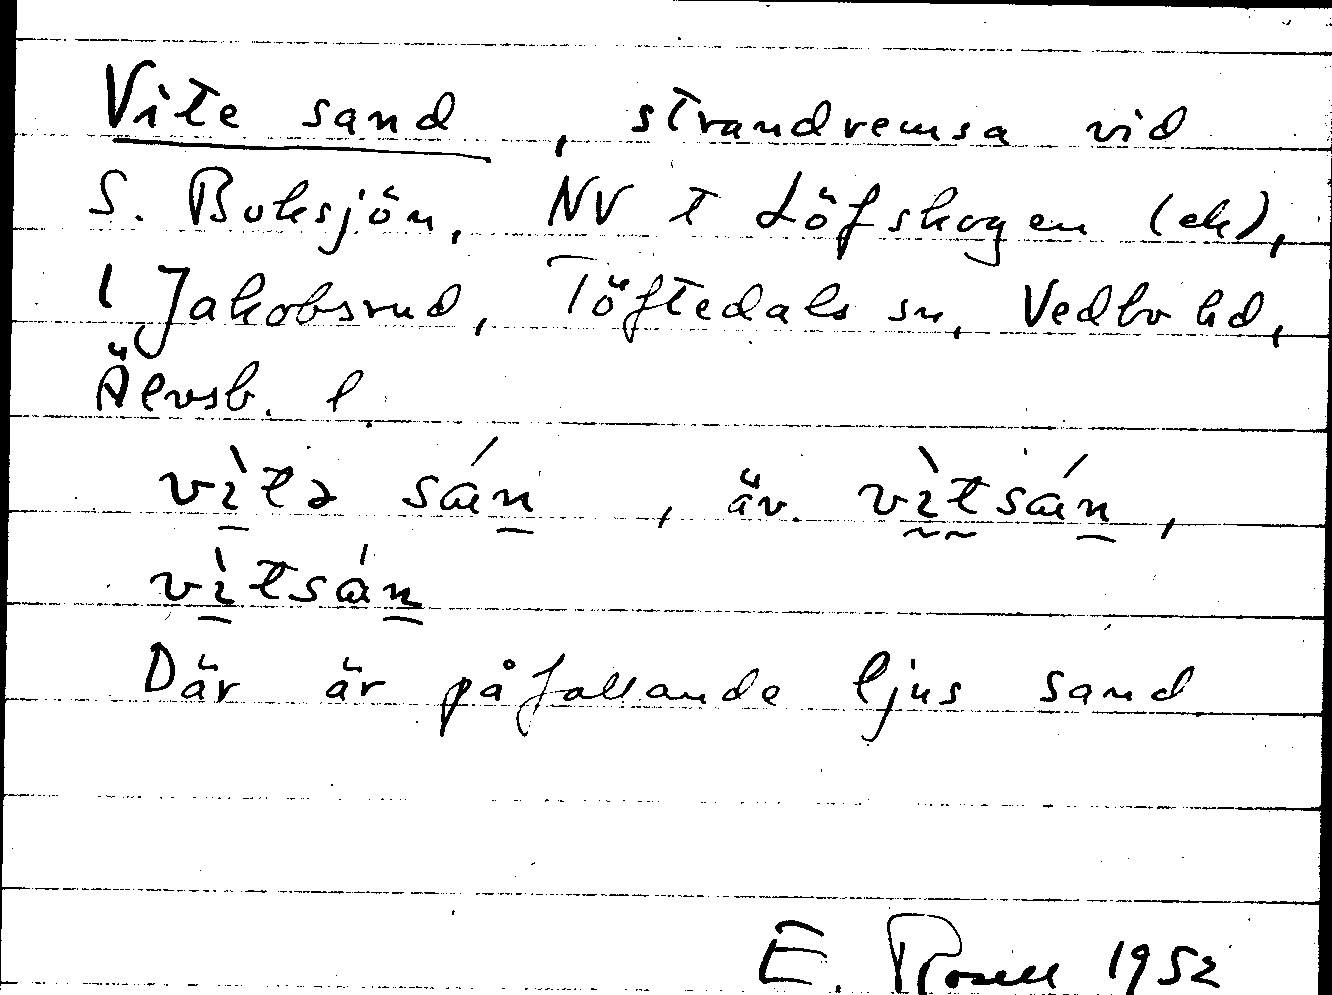 Vite sand, strandremsa vid
S. Boksjön, NV t Löfskogen (ek),
l Jakobsrud, Töftedals sn, Vedbo hd,
Älvsb. l.
vìtə sán, äv. vìtsán,
vìtsán
Där är påfallande ljus sand
E. Rosell 1952